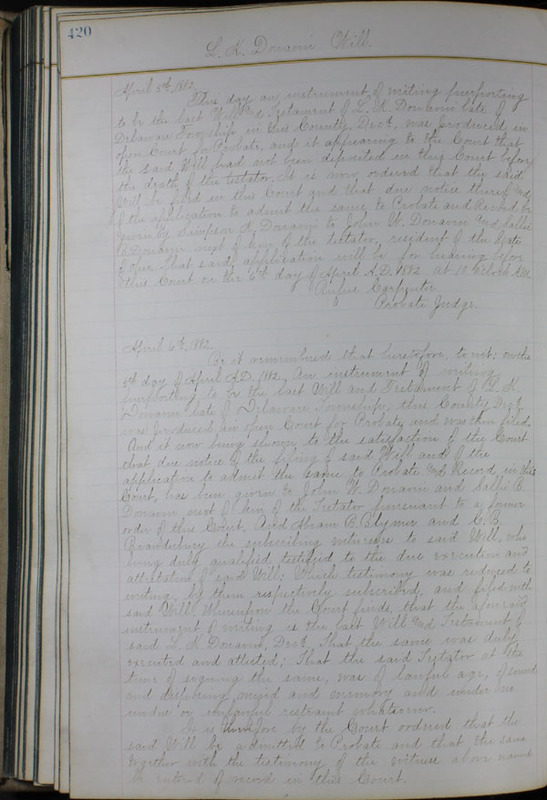 420
L. K. Donavin Will.
April 5th, 1882.
This day an instrument of writing purporting
to be the last Will and Testament of L. K. Donavin late of
Delaware Township, in this County, Dec'd, was produced in
open Court for Probate, and it appearing to the Court that
the said Will had not been deposited in this Court before
the death of the testator, it is now ordered that the said
Will be filed in this Court and that due notice thereof and
of the application to admit the same to Probate and Record be
given by Simpson K. Donavin to John W. Donavin and Sallie
B. Donavin next of kin of the testator, resident of the State
of Ohio that said application will be for hearing before
this Court on the 6th day of April A.D. 1882 at 10 O'clock A.M.
Rufus Carpenter
Probate Judge.
April 6th, 1882.
Be it remembered that heretofore, to wit: on the
5th day of April A.D. 1882, An instrument of writing
purporting to be the last Will and Testament of L. K.
Donavin late of Delaware Township, this County, Dec'd
was produced in open Court for Probate, and was then filed.
And it now being shown to the satisfaction of the Court
that due notice of the filing of said Will and of the
application to admit the same to Probate and Record in this
Court, has been given to John W. Donavin and Sallie B.
Donavin next of kin of the Testator pursuant to a former
order of this Court. And Hiram B. Clymer and C. B.
Brandebury the subscribing witnesses to said Will, who
being duly qualified, testified to the due execution and
attestation of said Will; Which testimony was reduced to
writing, by them respectively subscribed, and filed with
said Will; Whereupon the Court finds, that the aforesaid
instrument of writing is the last Will and Testament of
said L. K. Donavin, Dec'd. That the same was duly
executed and attested; That the said Testator at the
time of signing the same, was of lawful age, of sound
and disposing mind and memory and under no
undue or unlawful restraint whatsoever.
It is therefore by the Court ordered that the
said Will be admitted to Probate and that the same
together with the testimony of the witness above named
be entered of record in this Court.